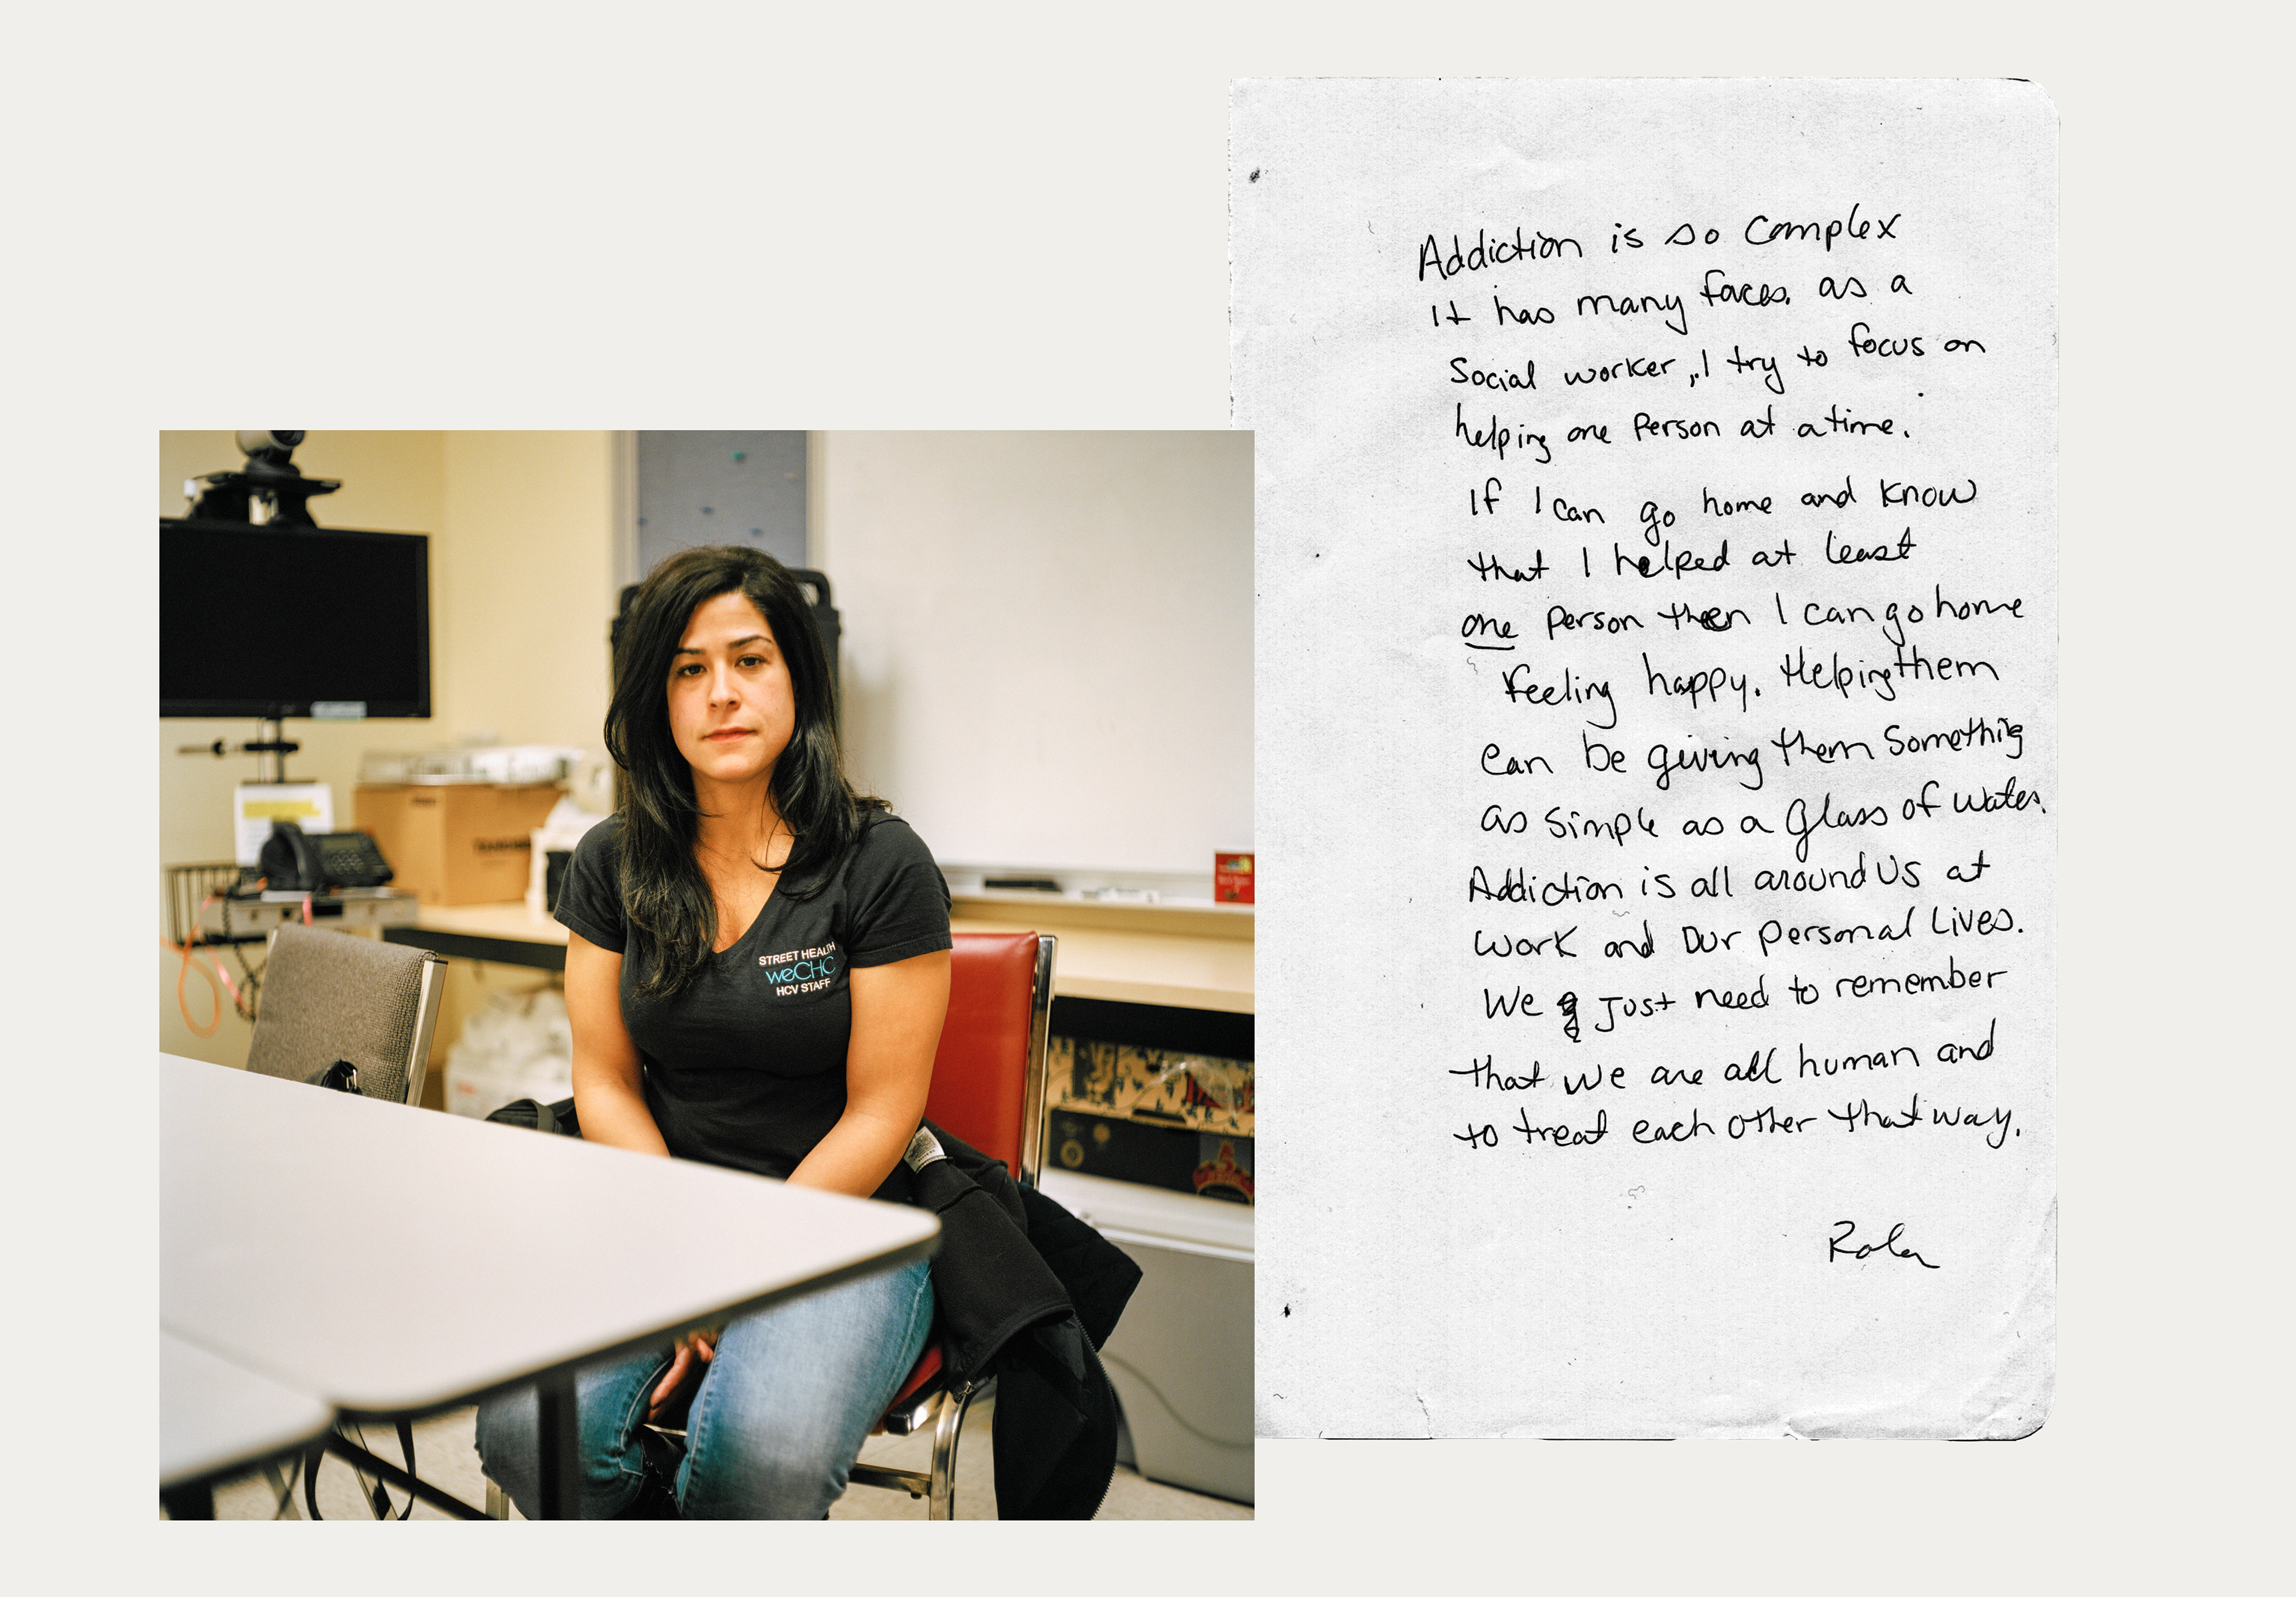 STREET HEALTH
weCHC
HCV STAFF
Addiction is so complex
it has many faces. as a
Social worker, I try to focus on
helping one Person at a time.
If I can go home and know
that I helped at least
one Person then I can go home
feeling happy. Helping them
can be giving them Something
as Simple as a Glass of water.
Addiction is all around us at
work and our Personal Lives.
We just need to remember
that we are all human and
to treat each other that way.
Rola